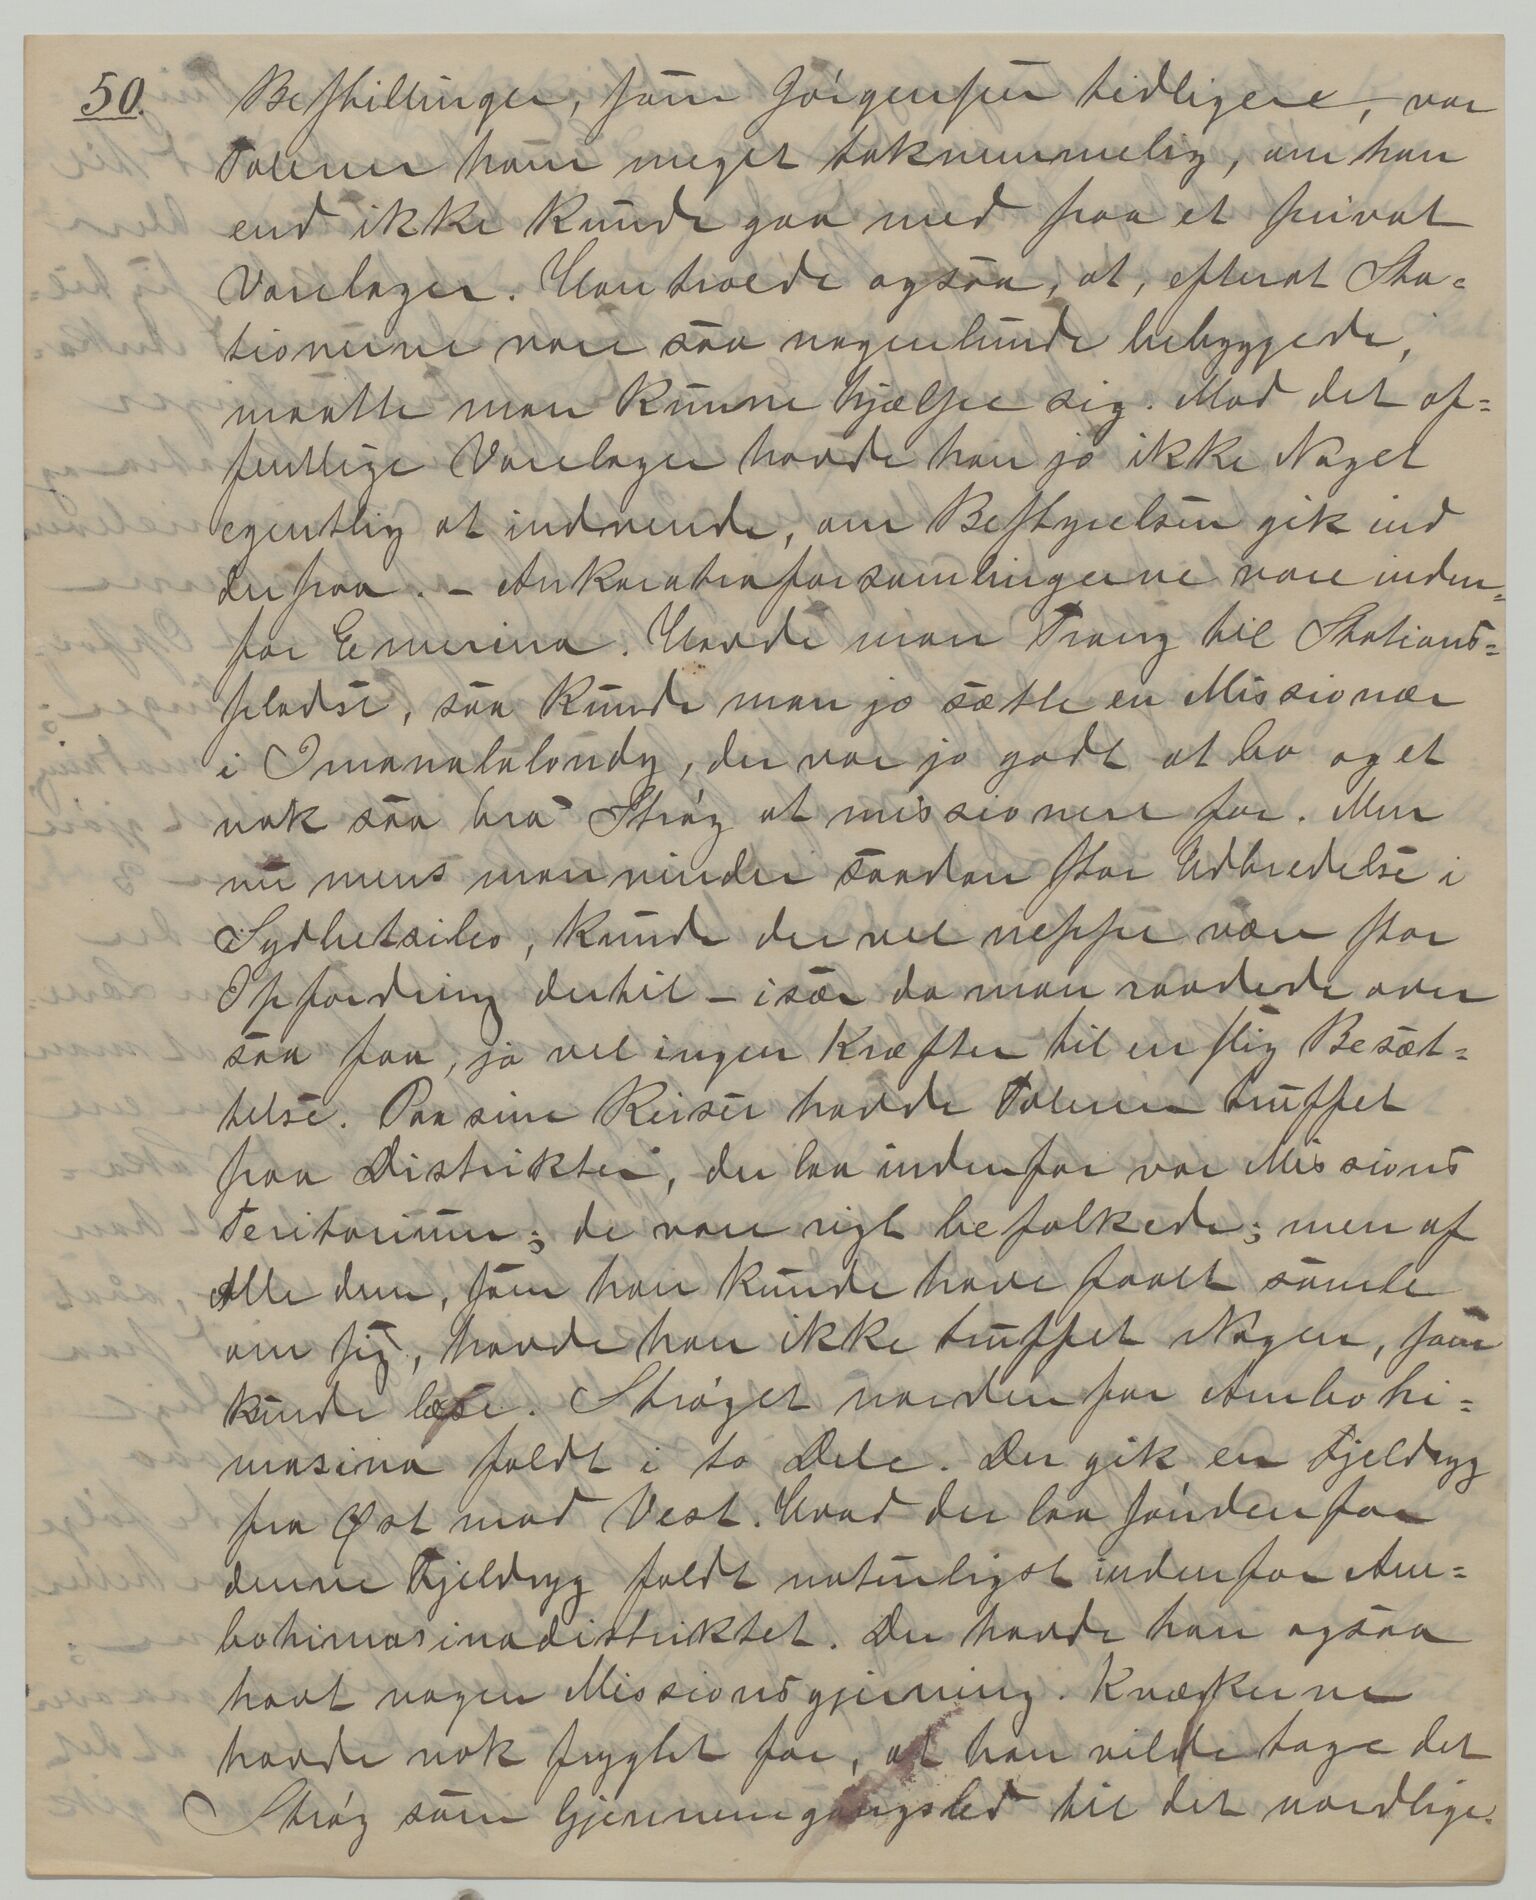 50.
Bestillinger, som Jörgensen tidligere, var
Taleren ham meget taknemmelig, om han
end ikke kunde gaa med paa et privat
Varelager. Han troede ogsaa, at, efterat Sta=
tionerne vare saa nogenlunde bebyggede,
maatte man kunne hjælpe sig. Mod det of=
fentlige Varelager havde han jo ikke Noget
egentlig at indvende, om Bestyrelsen gik ind
derpaa. – Ankaratraforsamlingerne vare inden=
for Emerina. Havde man Trang til Stations=
pladse, saa kunde man jo sætte en Missionær
i Imanalalondy, der var jo godt at bo og et
nok saa bra Strög at missionere for. Men
nu mens man vinder saadan stor Udbredelse i
Sydbetsileo, kunde der vel neppe være stor
Opfordring dertil – især da man raadede over
saa faa, ja vel ingen Kræfter til en slig Besæt=
telse. Paa sine Reiser havde Taleren truffet
paa Distrikter, der laa indenfor vor Missions
Teritorium; de vare rigt befolkede; men af
Alle dem, som han kunde have faaet samle
om sig, havde han ikke truffet Nogen, som
kunde læse. Ströget nordenfor Ambohi=
masina faldt i to Dele. Der gik en Fjeldryg
fra Øst mod Vest. Hvad der laa söndenfor
denne Fjeldryg faldt naturligst indenfor Am=
bohimasinadistriktet. Der havde han ogsaa
havt nogen Missionsgjerning. Kvækerne
havde nok frygtet for, at han vilde tage det
Strög som Gjennemgangsled til det nordlige.